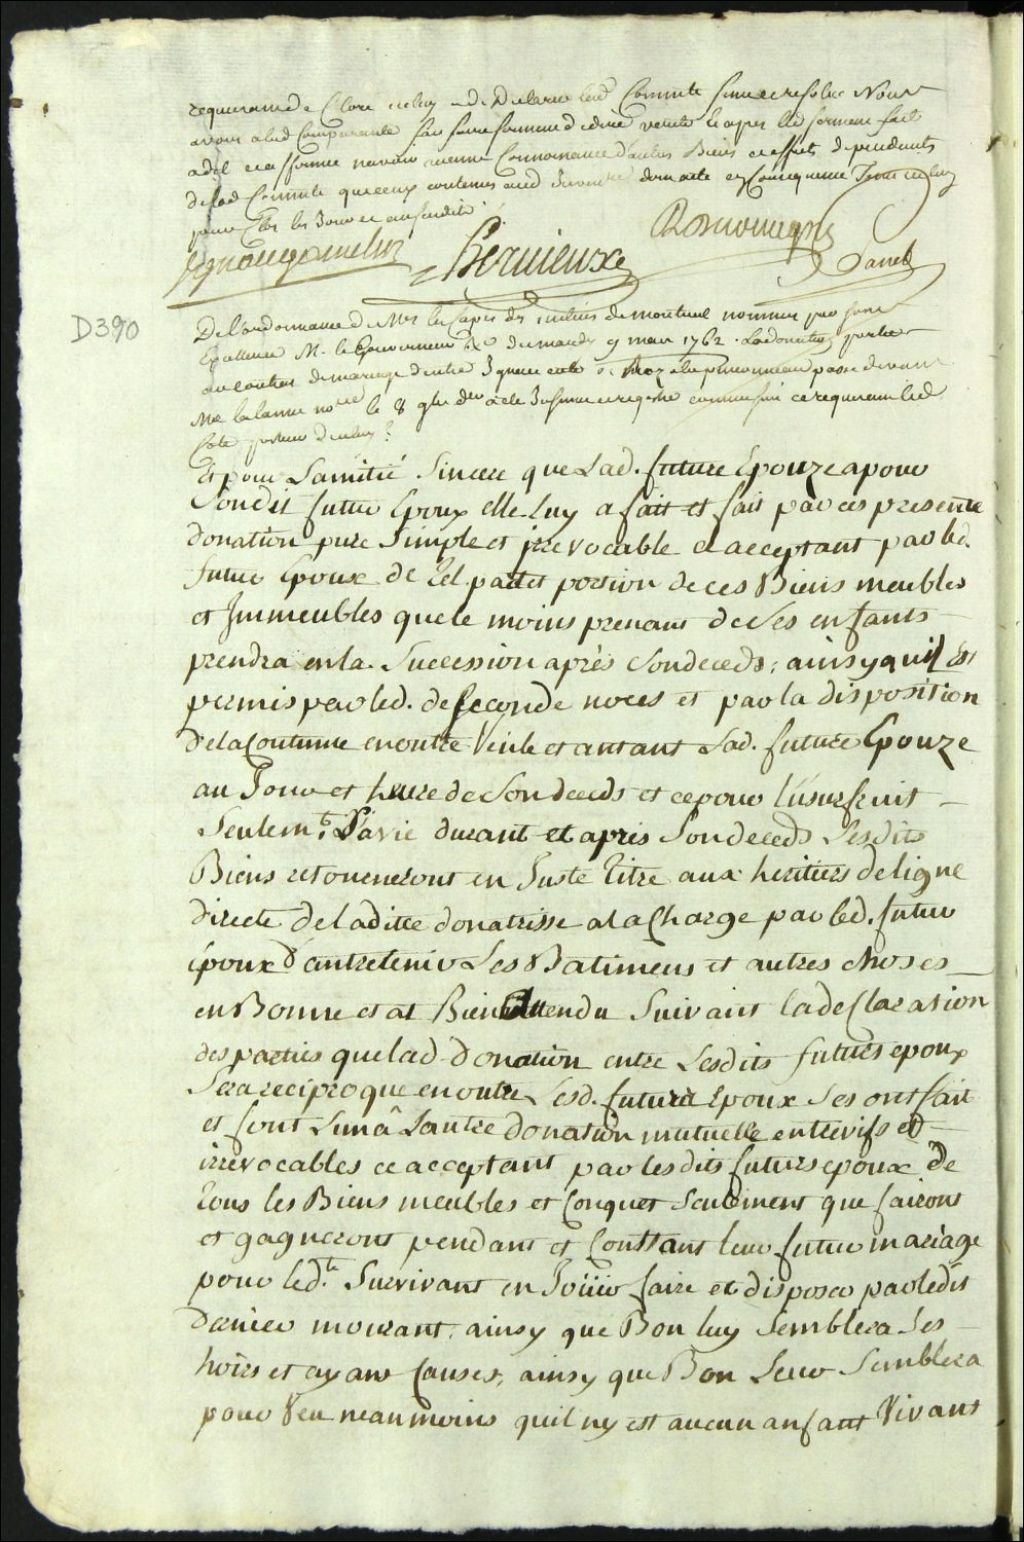 requerant de Clore celuy de Declarer led. Commte finie et resolue Nous
avons alad Comparante fait faire serment de dire verité le apres led serment fait
a del et affirmee navoir aucune Connoissance dautres Biens et effets dependants
de lad Commte que ceux contenus aud Inventre dont acte en Consequence
pour Clos les Jour et an susdits
Hervieux
Panet
D390
De lordonnance de Mrs les Capes des milices de montreal nommes par sone
Excellence M. le Gouverneur &c du mardy 9 mars 1762. La donation portee
au contrat de mariage dentre Ignace passé devant
Me lalanne nore le 8
porteur diceluy
Et pour Lamitié Sincere que Lad. future Epouze a pour
Sondit futur Epoux elle luy a fait et fait par ces presente
donation pure Simple et irrevocable ce acceptant par led.
futur Epoux de tel part et portion de ces Biens meubles
et Immeubles que le moins prenant de Ses enfants
prendra en la Succession après Son deceds; ainsy quil Est
permis par led. de Seconde noces et par la disposition
de la Coutume en outre Veule et antant Lad. future Epouze
au Jour et heure de Son deceds et ce pour l'usurfruit
Seulemt. Sa vie durant et apris Son deceds Lesdits
Biens retoueneront en Juste titre aux heritiers de ligne
directe de la ditte donatrisse a la Charge par led. futur
époux d'antretenir Les Batimens et autres choses
en Bonne et at Bien Entendu Suivant la declaration
des parties que lad donation entre Lesdits futurs epoux
Sera reciproque en outre Lesd. futurs Epoux Ses ont fait
et font Lun â Lautre donation mutuelle entrevifs et
irrevocables ce acceptant par lesdits futurs epoux De
tous les Biens meubles et Conquet Seulement que fairont
et gagneront pendant et Constant leur futur mariage
pour led.t Survivant en Joüiir faire et disposer par ledit
dernier mourant. ainsy que Bon luy Semblera Ses
hoirs et ayans Causes, ainsy que Bon Leur Semblera
pour Veu neanmoins quil ny est aucun anfant Vivant